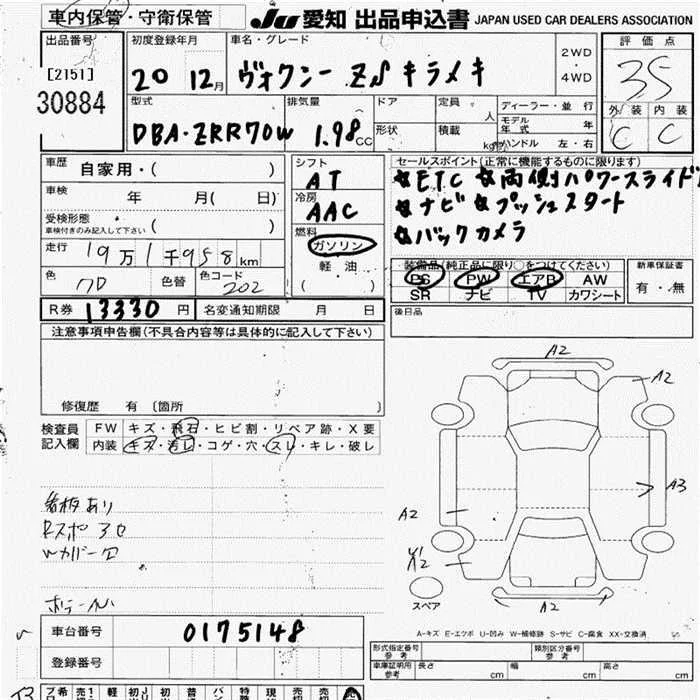 車内保管・守衛保管
JU 愛知 出品申込書 JAPAN USED CAR DEALERS ASSOCIATION
出品番号 初度登録年月 車名・グレード 2WD 評価点
[2151] 20 12月 ヴォクシー ZS キラメキ 4WD 35
30884
型式 排気量 ドア 定員 人 ディーラー・並行 外装 内装
DBA-ZRR70W 1.98cc 形状 積載 kg モデル年式 年 C C
ハンドル 左・右
車歴 自家用・( ) シフト AT セールスポイント(正常に機能するものに限ります)
車検 年 月( 日) 冷房 AAC ★ETC ★両側パワースライド
受検形態 車検付きのみ記入して下さい ( ) ★ナビ ★プッシュスタート
燃料 ガソリン ★バックカメラ
走行 19万1千958km 軽油
色 色替 色コード 202 ( )
装備品(純正品に限り○をつけてください) 新車保証書
PS PW エアB AW 有・無
SR ナビ TV カワシート
R券 13330 円 名変通知期限 月 日 後日品
注意事項申告欄(不具合内容等は具体的に記入して下さい)
修復歴 有 〔箇所 〕
検査員記入欄 FW キズ・飛石・ヒビ割・リペア跡・X要
内装 キズ・汚レ・コゲ・穴・スレ・キレ・破レ
A2
A2
A3
A2
A2
A2
看板あり
スペア
車台番号 0175148
A-キズ E-エクボ U-凹み W-補修跡 S-サビ C-腐食 XX-交換済
登録番号
形式指定番号 参考 類別区分番号 参考
車庫証明用 参考 長さ cm 幅 cm 高さ cm